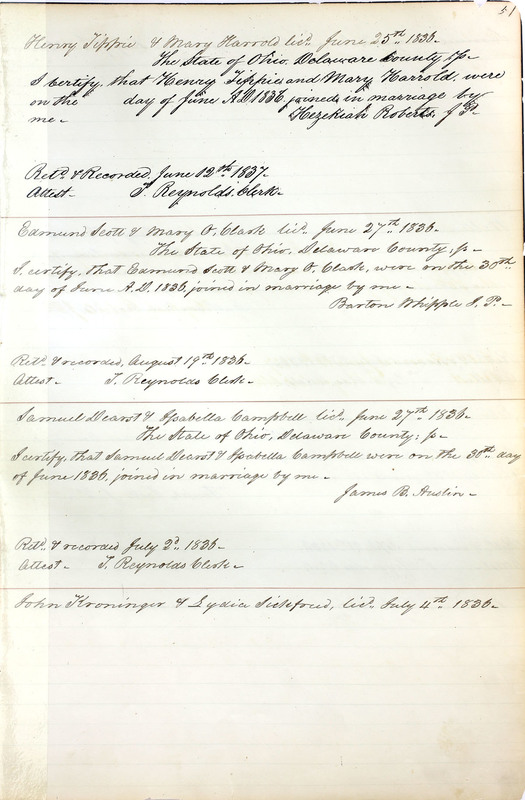 51
Henry Tippie & Mary Harrold licd. June 25th 1836.
The State of Ohio, Delaware County ss
I certify, that Henry Tippie and Mary Harrold, were
on the day of June A.D. 1836, joined in marriage by
me - Hezekiah Roberts, J P.
Retd. & Recorded, June 12th 1837.
Attest - T. Reynolds. Clerk -
Edmund Scott & Mary O. Clark licd. June 27th 1836.
The State of Ohio, Delaware County, ss -
I certify, that Edmund Scott & Mary O. Clark, were on the 30th
day of June A.D. 1836, joined in marriage by me -
Barton Whipple J. P. -
Retd. & recorded, August 19th 1836.
Attest - T. Reynolds Clerk -
Samuel & Isabella Campbell licd. June 27th 1836.
The State of Ohio, Delaware County; ss -
I certify, that Samuel & Isabella Campbell were on the 30th day
of June 1836, joined in marriage by me -
James B. Austin -
Retd. & recorded July 2d. 1836.
Attest - T. Reynolds Clerk -
John Kroninger & Lydia licd. July 4th 1836.